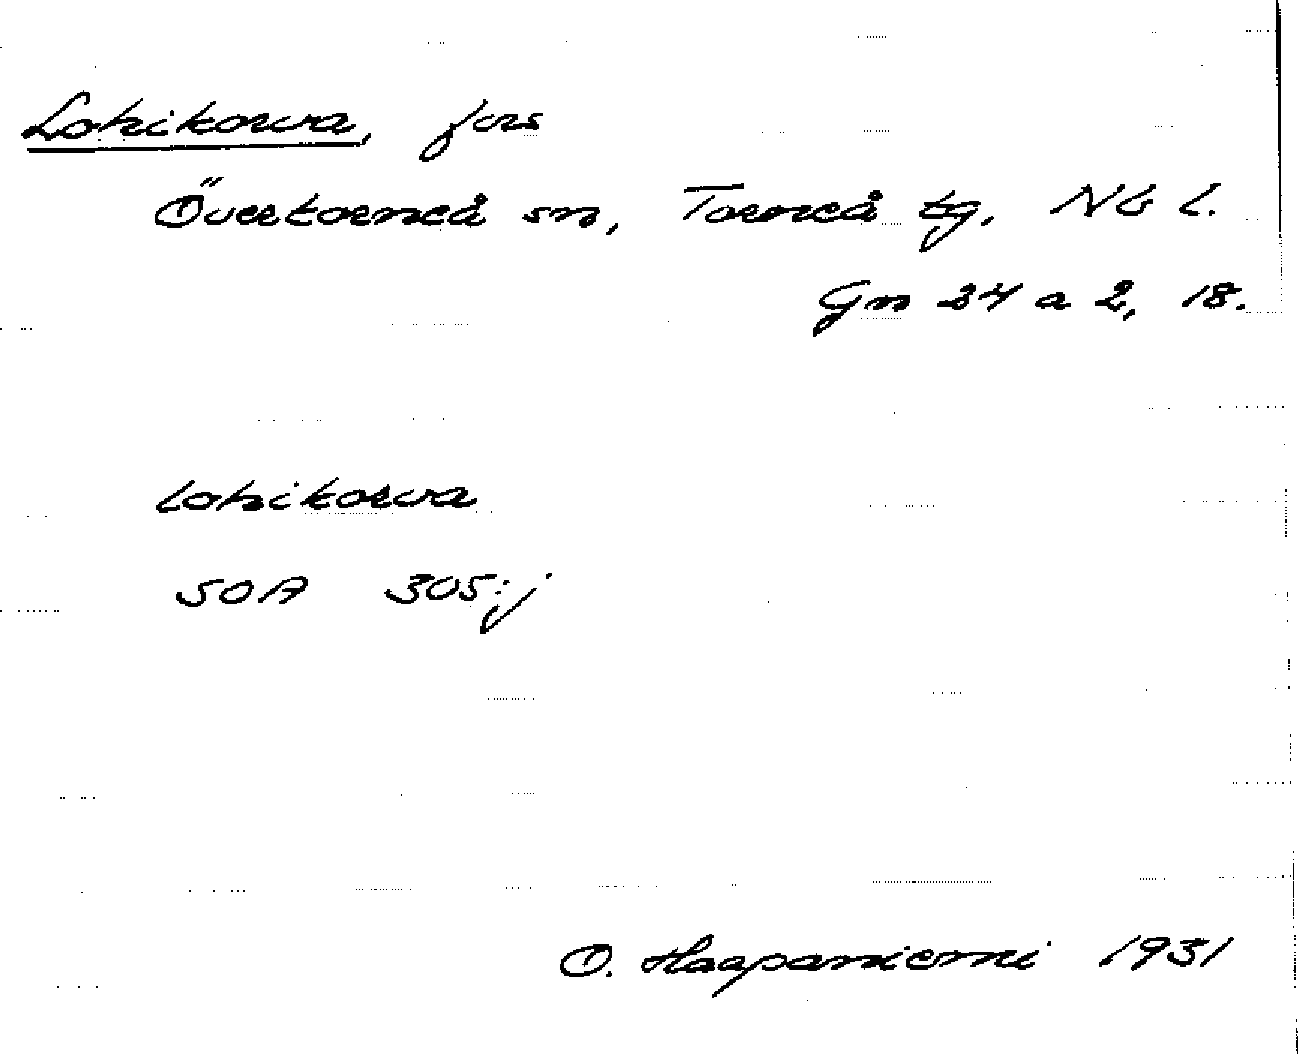 Lohikorva, fors
Övertorneå sn, Torneå tg, Nb l.
Gn 34 a 2, 18.
Lohikorva
SOA 305:j
O. Haapaniemi 1931